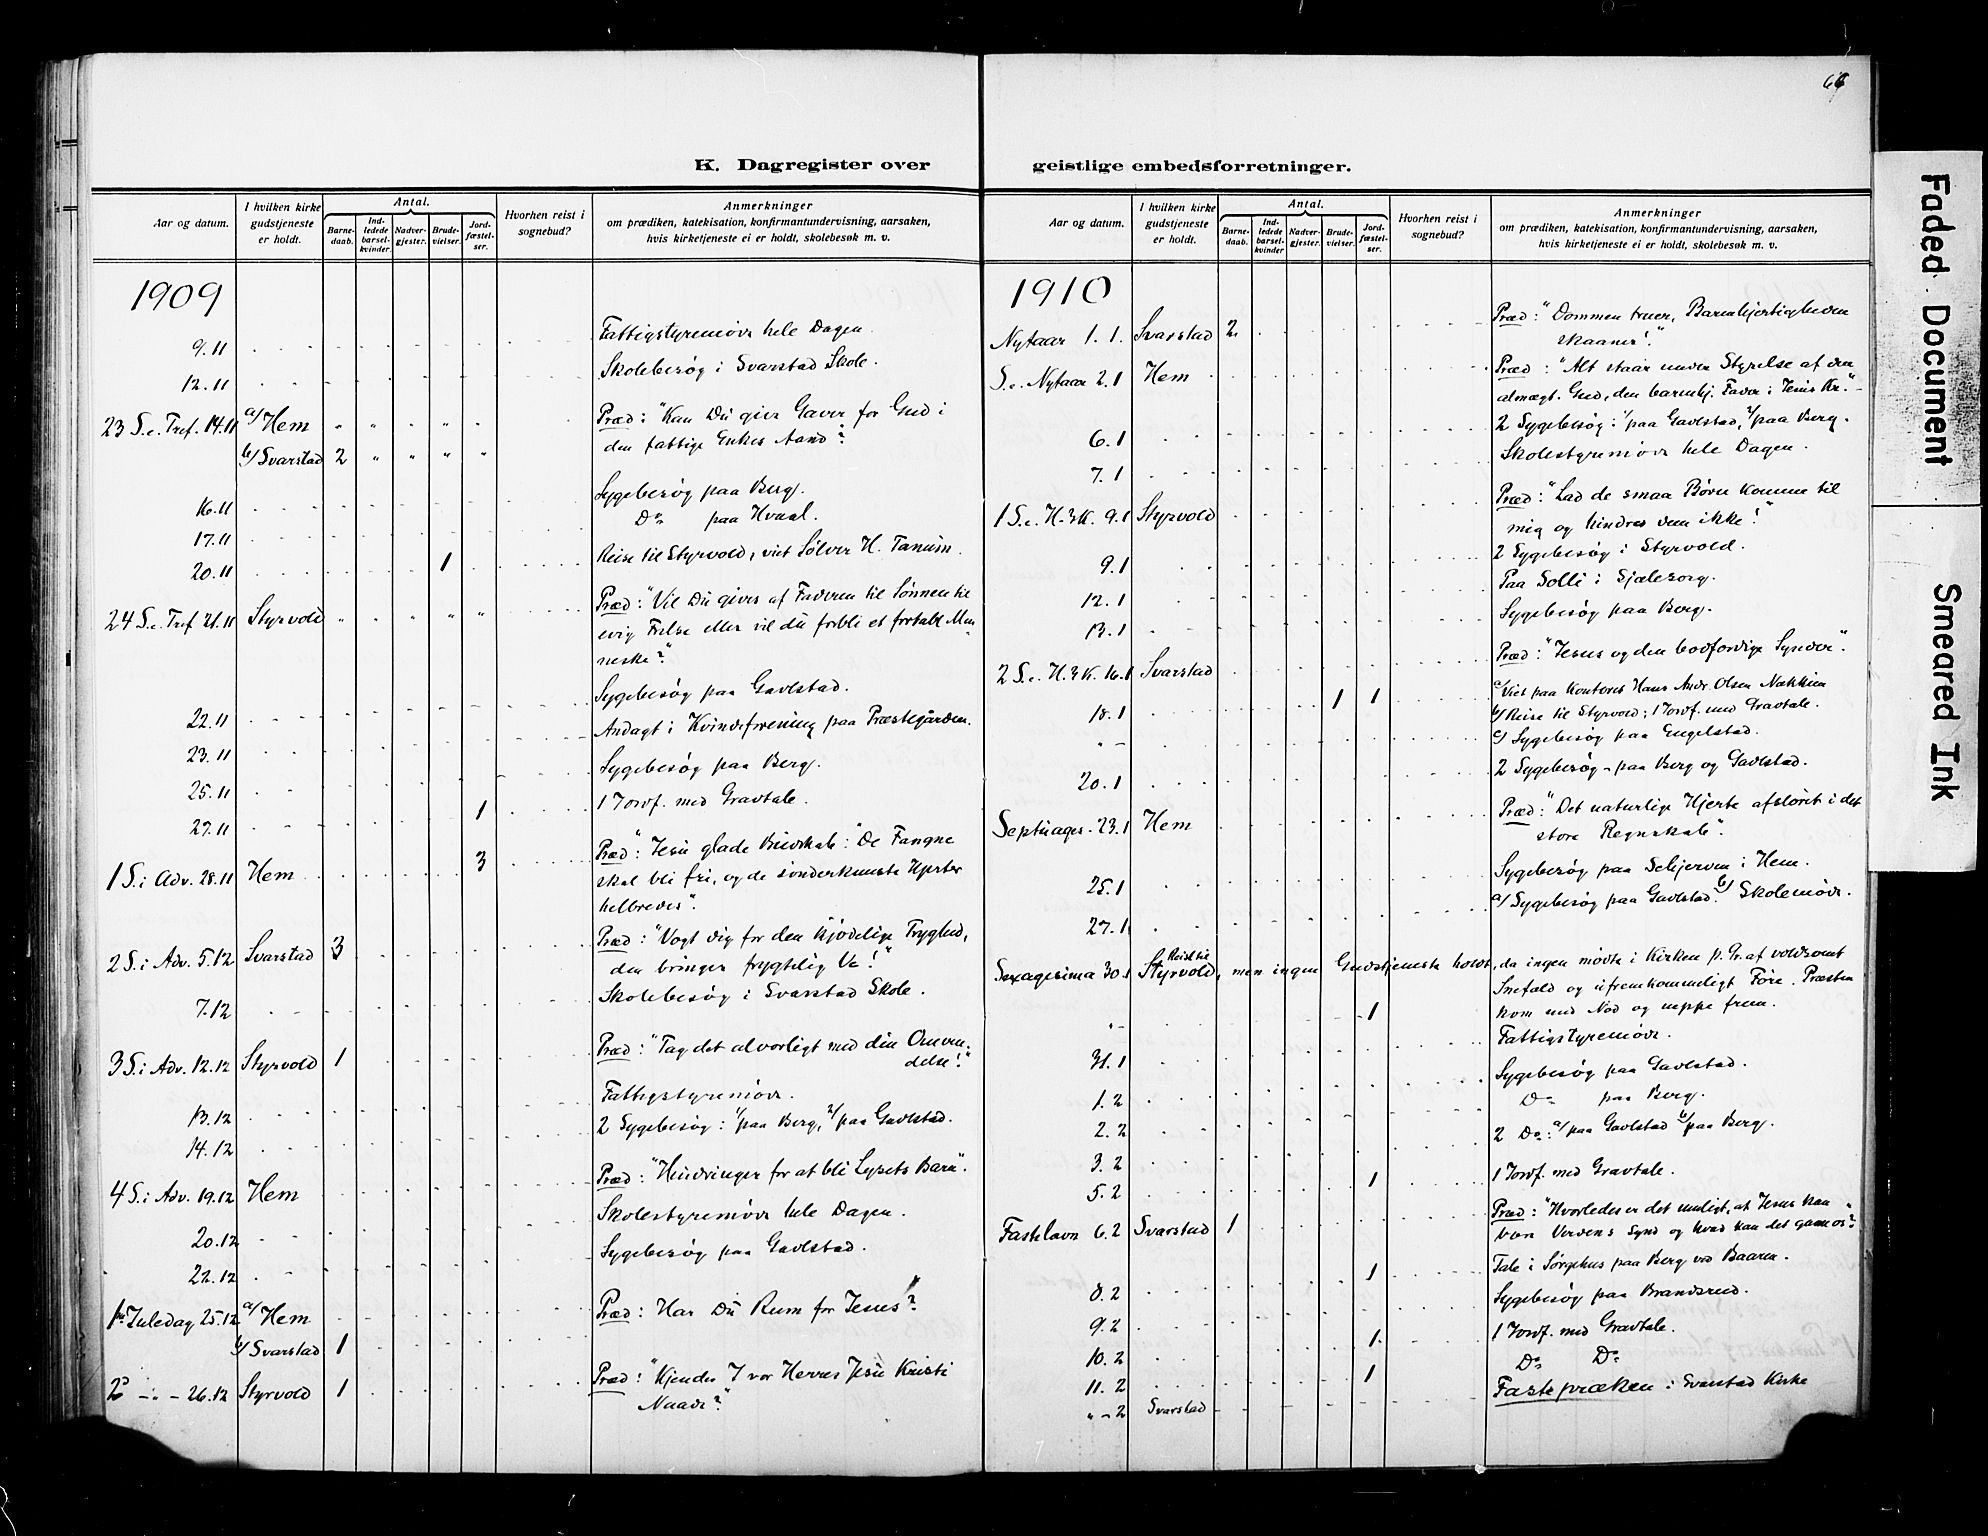 66
K. Dagregister over
Aar og datum.
I hvilken kirke gudstjeneste er holdt.
Antal.
Barne-daab.
Ind-ledede barsel-kvinder.
Nadver-gjester.
Brude-vielser.
Jord-fæstel-ser.
Hvorhen reist i sognebud?
Anmerkninger
om prædiken, katekisation, konfirmantundervisning, aarsaken,
hvis kirketjeneste ei er holdt, skolebesøk m. v.
1909
9.11 Fattigstyremøde hele Dagen.
12.11 Skolebesøg i Svarstad Skole.
23 S.e. Tref. 14.11 a/ Hem " " " " " Præd: "Kan Du give Gaver for Gud i
b/ Svarstad 2 " " " " den fattige Enkes Aand?"
16.11 Sygebesøg paa Berg.
17.11 Do paa Hvaal.
20.11 1 Reise til Styrvold, viet Sølver H. Tanum.
24 S.e. Tref 21.11 Styrvold " " " " " Præd: "Vil Du gives af Faderen til Sønnen til
evig Frelse eller vil du forbli et fortabt Men-
neske?"
22.11 Sygebesøg paa Gavlstad.
23.11 Andagt i Kvindeforening paa Præstegården.
25.11 Sygebesøg paa Berg.
27.11 1 1 Jordf. med Gravtale.
1 S. i Adv. 28.11 Hem 3 Præd: "Jesu glade Budskab: "De Fangne
skal bli fri, og de sønderknuste Hjerter
helbredes".
2 S. i Adv. 5.12 Svarstad 3 Præd: "Vogt dig for den kjødelige Tryghed,
den bringer frygtelig Ve!"
7.12 Skolebesøg i Svarstad Skole.
3 S. i Adv. 12.12 Styrvold 1 Præd: "Tag det alvorligt med din Omven-
delse!"
13.12 Fattigstyremøde.
14.12 2 Sygebesøg: 1/ paa Berg, 2/ paa Gavlstad.
4 S. i Adv. 19.12 Hem Præd: "Hindringer for at bli Lysets Barn".
20.12 Skolestyremøde hele Dagen.
22.12 Sygebesøg paa Gavlstad.
1ste Juledag 25.12 a/ Hem Præd: Har Du Rum for Jesus?
b/ Svarstad 1
2d - " - 26.12 Styrvold 1 Præd: "Kjender I vor Herres Jesu Kristi
Naade?"
geistlige embedsforretninger.
Aar og datum.
I hvilken kirke gudstjeneste er holdt.
Antal.
Barne-daab.
Ind-ledede barsel-kvinder
Nadver-gjester.
Brude-vielser.
Jord-fæstel-ser.
Hvorhen reist i sognebud?
Anmerkninger
om prædiken, katekisation, konfirmantundervisning, aarsaken,
hvis kirketjeneste ei er holdt, skolebesøk m. v.
1910
Nytaar 1.1. Svarstad 2 Præd: "Dommen truer, Barmhjertigheden
skaaner!"
S.e. Nytaar 2.1 Hem Præd: "Alt staar under Styrelse af den
almægt. Gud, den barmhj. Fader i Jesus Kr."
6.1 2 Sygebesøg: 1/ paa Gavlstad, 2/ paa Berg.
7.1 Skolestyremøde hele Dagen.
1 S.e. H.3K. 9.1 Styrvold Præd: "Lad de smaa Børn komme til
mig og hindrer dem ikke!"
9.1 2 Sygebesøg i Styrvold.
12.1 Paa Solli i Sjælesorg.
13.1 Sygebesøg paa Berg.
2 S.e. H.3K. 16.1 Svarstad Præd: "Jesus og den bodfærdige Synder".
18.1 1 1 a/ Viet paa Kontoret Hans Andr. Olsen Nækkien
b/ Reise til Styrvold; 1 Jordf. med Gravtale.
" - c/ Sygebesøg paa Engelstad.
20.1 2 Sygebesøg - paa Berg og Gavlstad.
Septuages. 23.1 Hem Præd: "Det naturlige Hjerte afsløret i det
store Regnskab".
25.1 Sygebesøg paa Schjerven i Hem.
27.1 a/ Sygebesøg paa Gavlstad. b/ Skolemøde.
Sexagesima 30.1 Reist til Styrvold, men ingen Gudstjeneste holdt, da ingen mødte i Kirken p. Gr. af voldsomt
Snefald og ufremkommeligt Føre. Præsten
" - 1 kom med Nød og neppe frem.
31.1 Fattigstyremøde.
1.2 Sygebesøg paa Gavlstad.
2.2 Do paa Berg.
3.2 2 Do: a/ paa Gavlstad b/ paa Berg.
5.2 1 1 Jordf. med Gravtale.
Fastelavn 6.2 Svarstad 1 Præd: "Hvorledes er det muligt, at Jesus kan
bære Verdens Synd og hvad kan det gavne os?"
8.2 1 Tale i Sørgehus paa Berg ved Baaren.
9.2 Sygebesøg paa Brandsrud.
10.2 1 1 Jordf. med Gravtale.
11.2 1 Do Do
" - 2 Svarstad Fastepræken i Svarstad Kirke
Faded Document
Smeared Ink